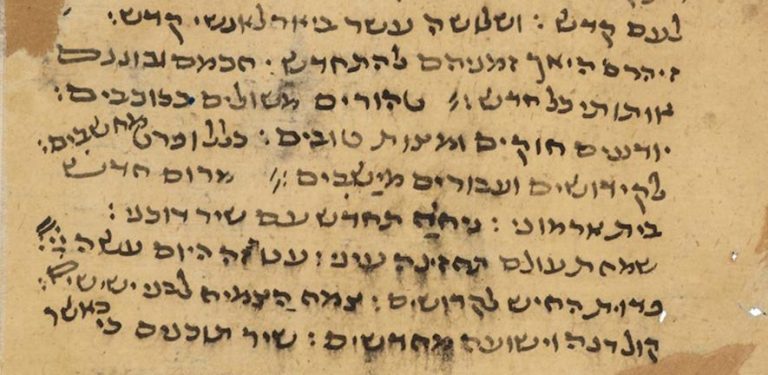 לעם קדש : ושלושה עשר ביאר לאנשי קדש :
זיהרם היאך זמניהם להתחדש . חכמם ובוננם
אותותי כל חדש :// טהורים משולים בכוכבים :
יודעים חוקים ומצות טובים : כללו פרט מחשבים :
לקידושים ועבורים מישבים :// מרום חדש
בית ארמוני : ניחח תחדש עם שיר דוכני :
שמחת עולם תחזינה עיני : עט זה היום עשה ייי :
פדות החיש לקדושים : צמח הצמיח לבני ישישים :
קול רנה וישועה מחדשים : שיר תוכנים כי כאשר